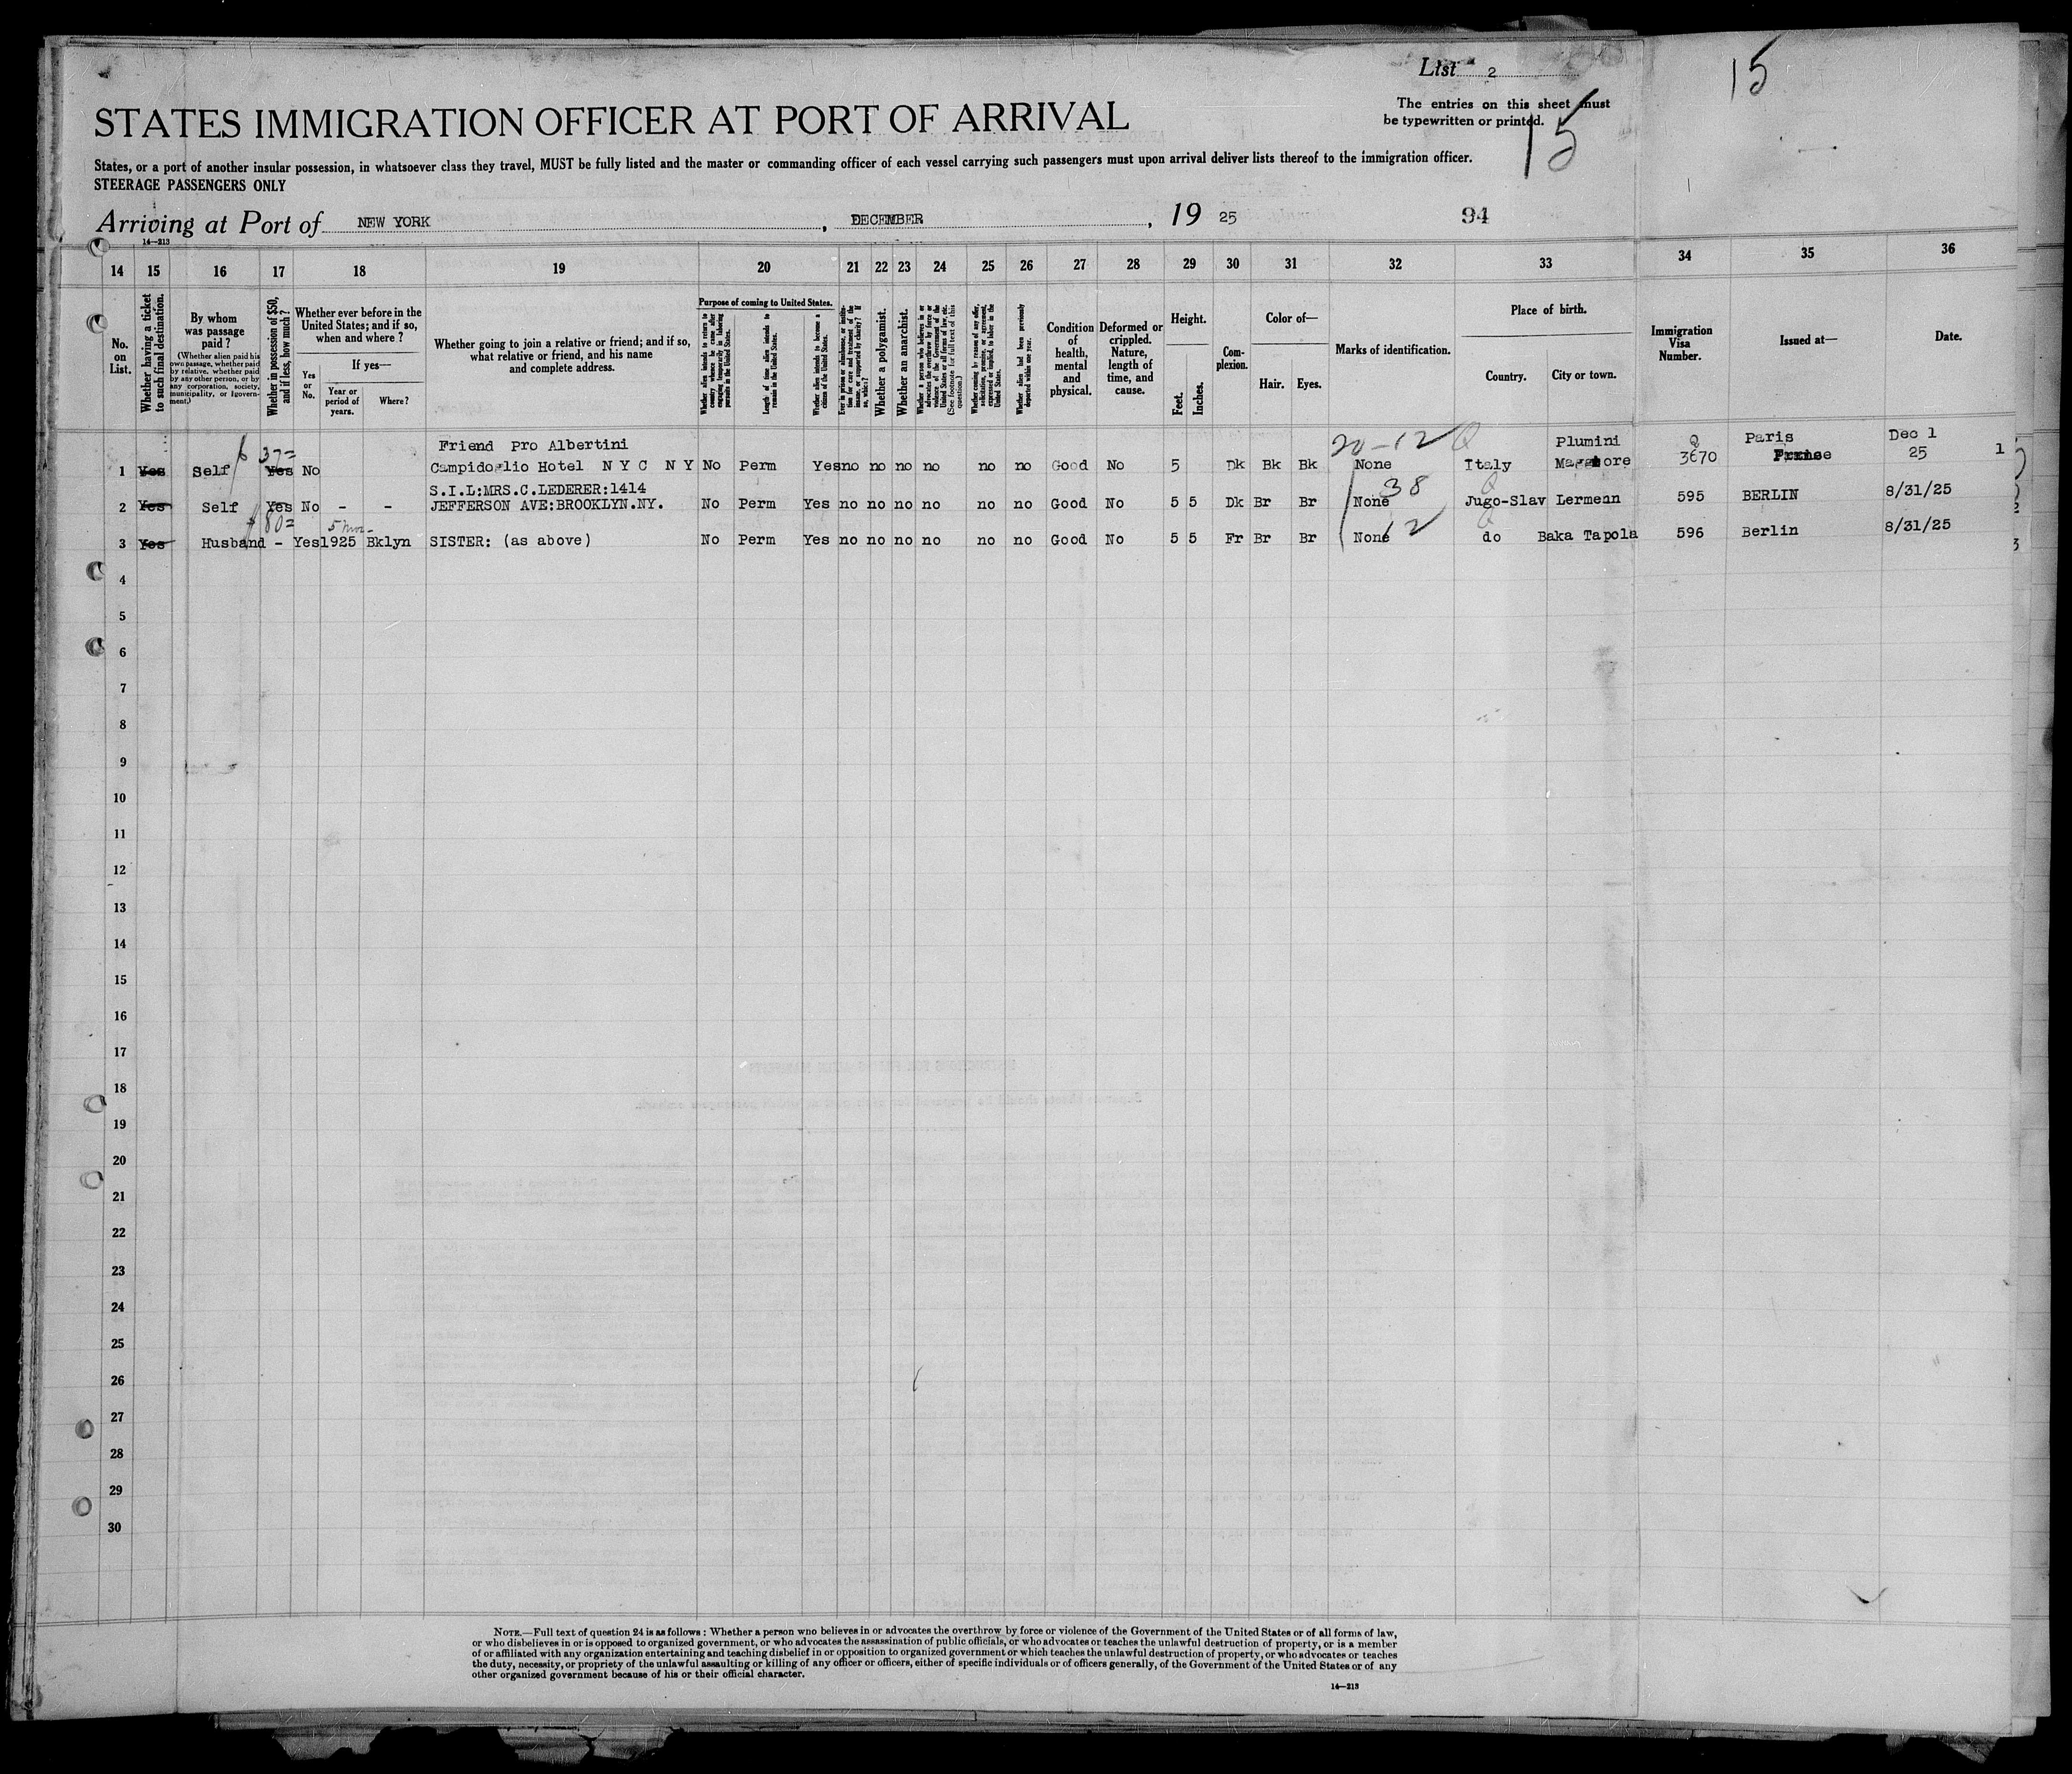 List 2
15
The entries on this sheet must
be typewritten or printed.
15
STATES IMMIGRATION OFFICER AT PORT OF ARRIVAL
States, or a port of another insular possession, in whatsoever class they travel, MUST be fully listed and the master or commanding officer of each vessel carrying such passengers must upon arrival deliver lists thereof to the immigration officer.
STEERAGE PASSENGERS ONLY
Arriving at Port of NEW YORK, DECEMBER, 19 25 94
14—213
14 15 16 17 18 19 20 21 22 23 24 25 26 27 28 29 30 31 32 33 34 35 36
No. on List.
Whether having a ticket to such final destination.
By whom was passage paid?
(Whether alien paid his own passage, whether paid by relative, whether paid by any other person, or by any corporation, society, municipality, or government.)
Whether in possession of $50, and if less, how much?
Whether ever before in the United States; and if so, when and where?
Yes or No.
If yes—
Year or period of years.
Where?
Whether going to join a relative or friend; and if so, what relative or friend, and his name and complete address.
Purpose of coming to United States.
Whether alien intends to return to country whence he came after engaging temporarily in laboring pursuits in the United States.
Length of time alien intends to remain in the United States.
Whether alien intends to become a citizen of the United States.
Ever in prison or almshouse, or institution for care and treatment of the insane, or supported by charity? If so, which?
Whether a polygamist.
Whether an anarchist.
Whether a person who believes in or advocates the overthrow by force or violence of the Government of the United States or all forms of law, etc. (See footnote for full text of this question.)
Whether coming by reason of any offer, solicitation, promise, or agreement, expressed or implied, to labor in the United States.
Whether alien had been previously deported within one year.
Condition of health, mental and physical.
Deformed or crippled. Nature, length of time, and cause.
Height.
Feet. Inches.
Com-plexion.
Color of—
Hair. Eyes.
Marks of identification.
Place of birth.
Country. City or town.
Immigration Visa Number.
Issued at—
Date.
$ 37= Friend Pro Albertini 20-12 Q Plumini Q Paris Dec 1
1 Yes Self Yes No Campidoglio Hotel N Y C N Y No Perm Yes no no no no no no Good No 5 Dk Bk Bk None Italy 3670 25 1
S.I.L:MRS.C.LEDERER:1414 38 Q
2 Yes Self Yes No - - JEFFERSON AVE:BROOKLYN.NY. No Perm Yes no no no no no no Good No 5 5 Dk Br Br None Jugo-Slav Lermenn 595 BERLIN 8/31/25 2
$ 80= 5 mos- 12 Q
3 Yes Husband - Yes 1925 Bklyn SISTER: (as above) No Perm Yes no no no no no no Good No 5 5 Fr Br Br None do Baka Tapola 596 Berlin 8/31/25 3
4
5
6
7
8
9
10
11
12
13
14
15
16
17
18
19
20
21
22
23
24
25
26
27
28
29
30
NOTE.—Full text of question 24 is as follows: Whether a person who believes in or advocates the overthrow by force or violence of the Government of the United States or of all forms of law,
or who disbelieves in or is opposed to organized government, or who advocates the assassination of public officials, or who advocates or teaches the unlawful destruction of property, or is a member
of or affiliated with any organization entertaining and teaching disbelief in or opposition to organized government or which teaches the unlawful destruction of property, or who advocates or teaches
the duty, necessity, or propriety of the unlawful assaulting or killing of any officer or officers, either of specific individuals or of officers generally, of the Government of the United States or of any
other organized government because of his or their official character.
14—213